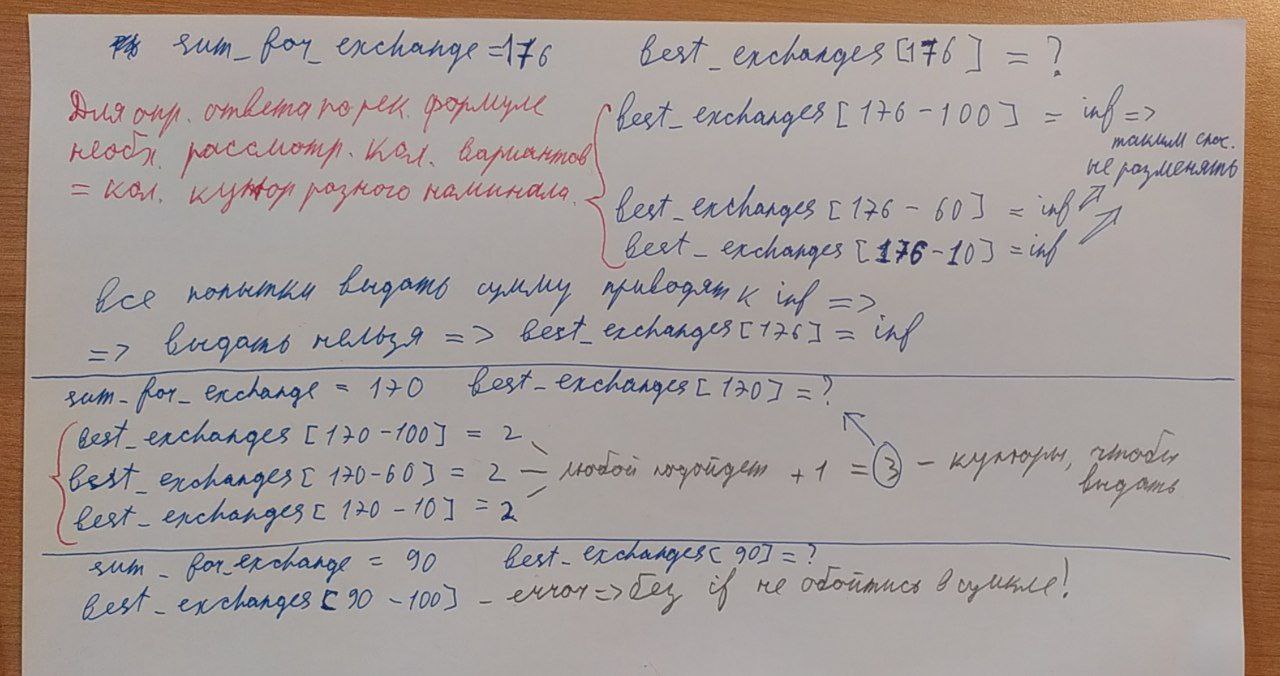 sum_for_exchange = 176 best_exchanges [176] = ?
Для опр. ответа по рек. формуле
необх. рассмотр. кол. вариантов
= кол. купюр разного наминала.
best_exchanges [176 - 100] = inf =>
таким спос.
не разменять
best_exchanges [176 - 60] = inf
best_exchanges [176 - 10] = inf
все попытки выдать сумму приводят к inf =>
=> выдать нельзя => best_exchanges [176] = inf
sum_for_exchange = 170 best_exchanges [170] = ?
best_exchanges [170-100] = 2
best_exchanges [170-60] = 2 — любой подойдет + 1 = 3 - купюры, чтобы
выдать
best_exchanges [170 - 10] = 2
sum_for_exchange = 90 best_exchanges [90] = ?
best_exchanges [90 - 100] - error => без if не обойтись в цикле!